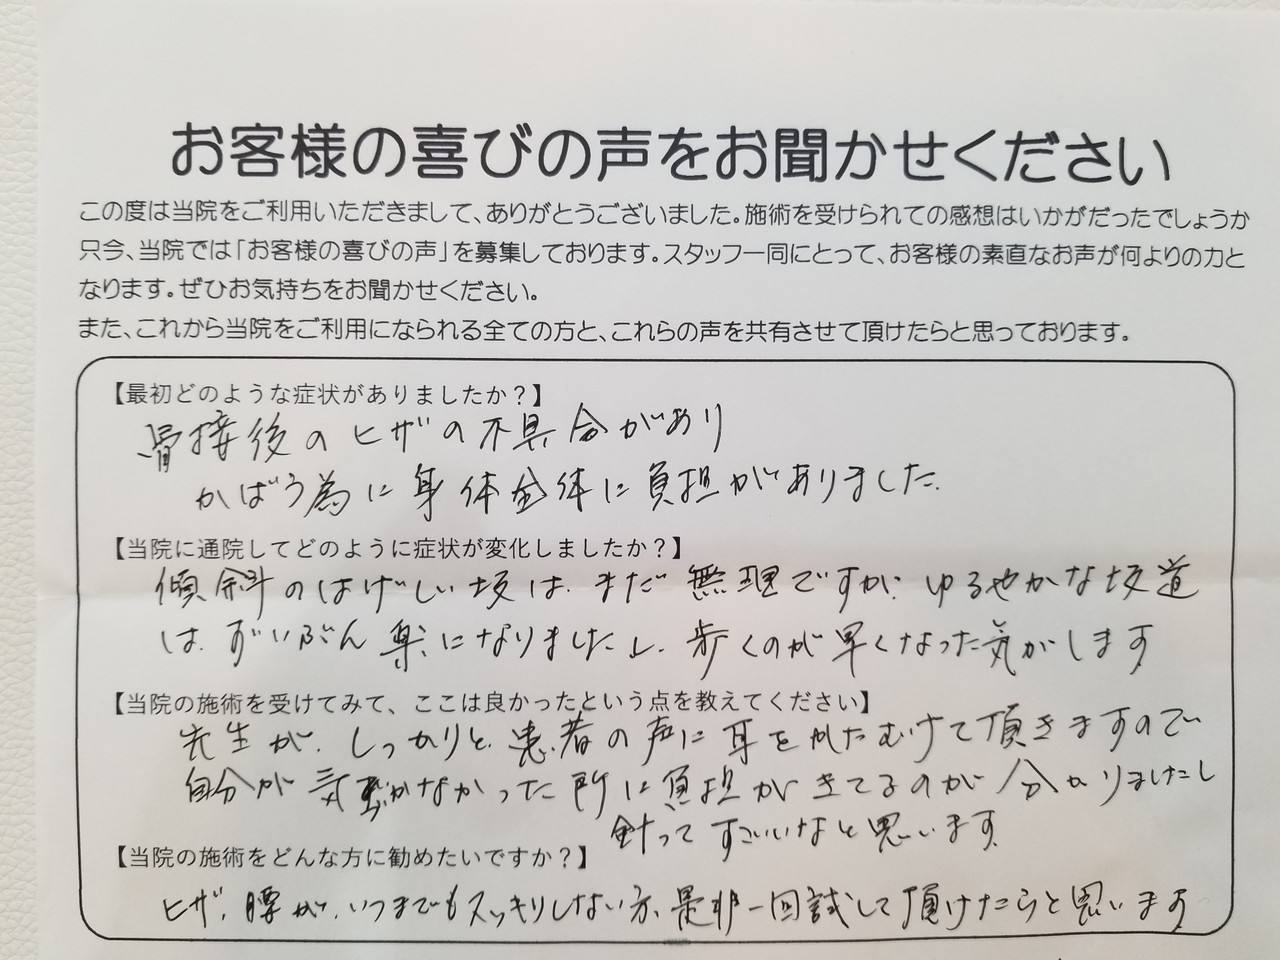 お客様の喜びの声をお聞かせください
この度は当院をご利用いただきまして、ありがとうございました。施術を受けられての感想はいかがだったでしょうか
只今、当院では「お客様の喜びの声」を募集しております。スタッフ一同にとって、お客様の素直なお声が何よりの力と
なります。ぜひお気持ちをお聞かせください。
また、これから当院をご利用になられる全ての方と、これらの声を共有させて頂けたらと思っております。
【最初どのような症状がありましたか？】
骨接後のヒザの不具合があり
かばう為に身体全体に負担がありました.
【当院に通院してどのように症状が変化しましたか？】
傾斜のはげしい坂は、まだ無理ですが、ゆるやかな坂道
は、ずいぶん楽になりましたし、歩くのが早くなった気がします
【当院の施術を受けてみて、ここは良かったという点を教えてください】
先生が、しっかりと、患者の声に耳をかたむけて頂きますので
自分が気づかなかった所に負担がきてるのが分かりましたし
針ってすごいなと思います.
【当院の施術をどんな方に勧めたいですか？】
ヒザ、腰が、いつまでもスッキリしない方、是非一回試して頂けたらと思います.